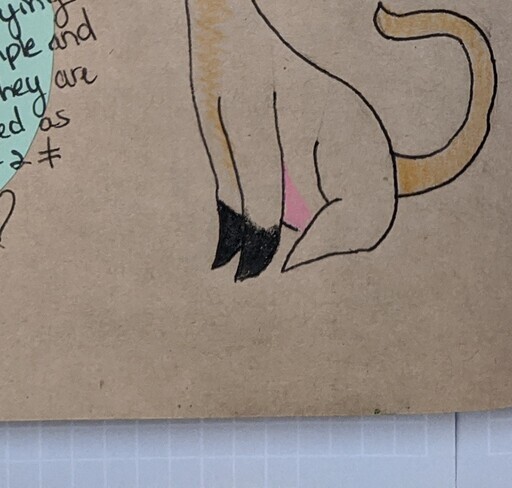 ying
ple and
hey are
ed as
-2 ≠
?